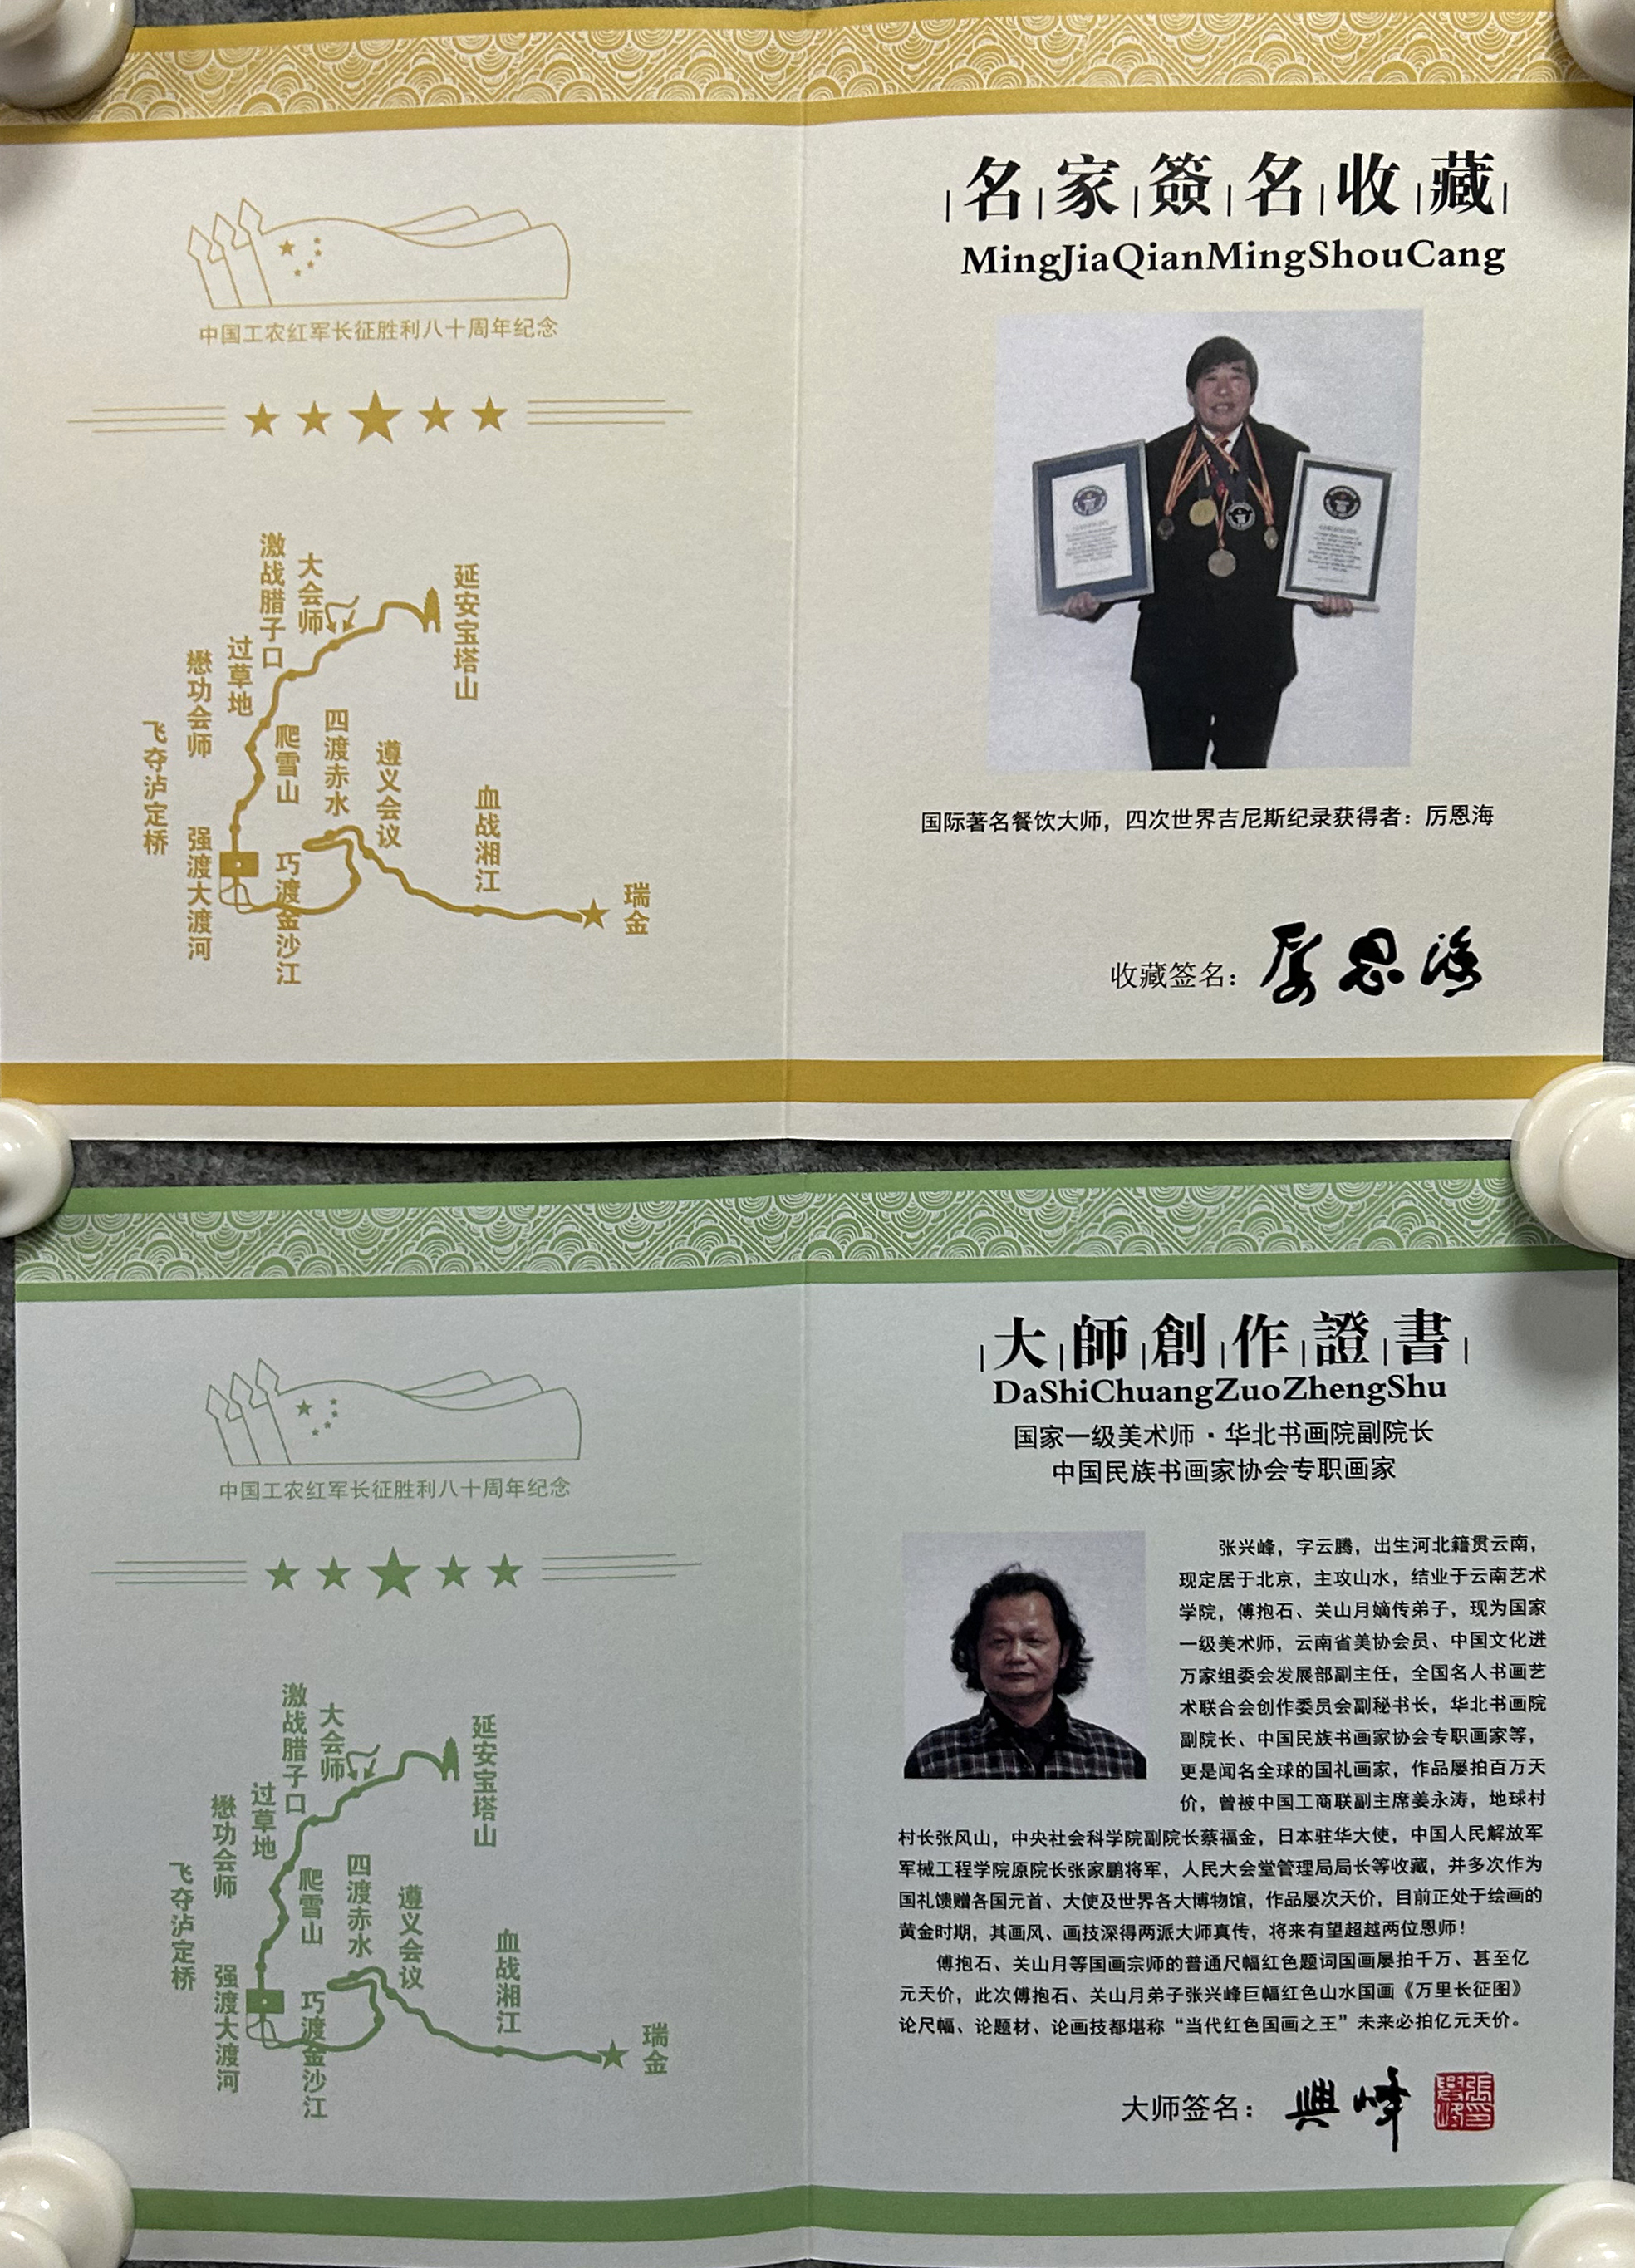 中国工农红军长征胜利八十周年纪念
激战腊子口
大会师
延安宝塔山
过草地
懋功会师
飞夺泸定桥
爬雪山
四渡赤水
遵义会议
血战湘江
强渡大渡河
巧渡金沙江
瑞金
名家簽名收藏
MingJiaQianMingShouCang
国际著名餐饮大师，四次世界吉尼斯纪录获得者：厉恩海
收藏签名：厉恩海
中国工农红军长征胜利八十周年纪念
激战腊子口
大会师
延安宝塔山
过草地
懋功会师
飞夺泸定桥
爬雪山
四渡赤水
遵义会议
血战湘江
强渡大渡河
巧渡金沙江
瑞金
大師創作證書
DaShiChuangZuoZhengShu
国家一级美术师·华北书画院副院长
中国民族书画家协会专职画家
张兴峰，字云腾，出生河北籍贯云南，
现定居于北京，主攻山水，结业于云南艺术
学院，傅抱石、关山月嫡传弟子，现为国家
一级美术师，云南省美协会员、中国文化进
万家组委会发展部副主任，全国名人书画艺
术联合会创作委员会副秘书长，华北书画院
副院长、中国民族书画家协会专职画家等，
更是闻名全球的国礼画家，作品屡拍百万天
价，曾被中国工商联副主席姜永涛，地球村
村长张风山，中央社会科学院副院长蔡福金，日本驻华大使，中国人民解放军
军械工程学院原院长张家鹏将军，人民大会堂管理局局长等收藏，并多次作为
国礼馈赠各国元首、大使及世界各大博物馆，作品屡次天价，目前正处于绘画的
黄金时期，其画风、画技深得两派大师真传，将来有望超越两位恩师！
傅抱石、关山月等国画宗师的普通尺幅红色题词国画屡拍千万、甚至亿
元天价，此次傅抱石、关山月弟子张兴峰巨幅红色山水国画《万里长征图》
论尺幅、论题材、论画技都堪称“当代红色国画之王”未来必拍亿元天价。
大师签名：興峰